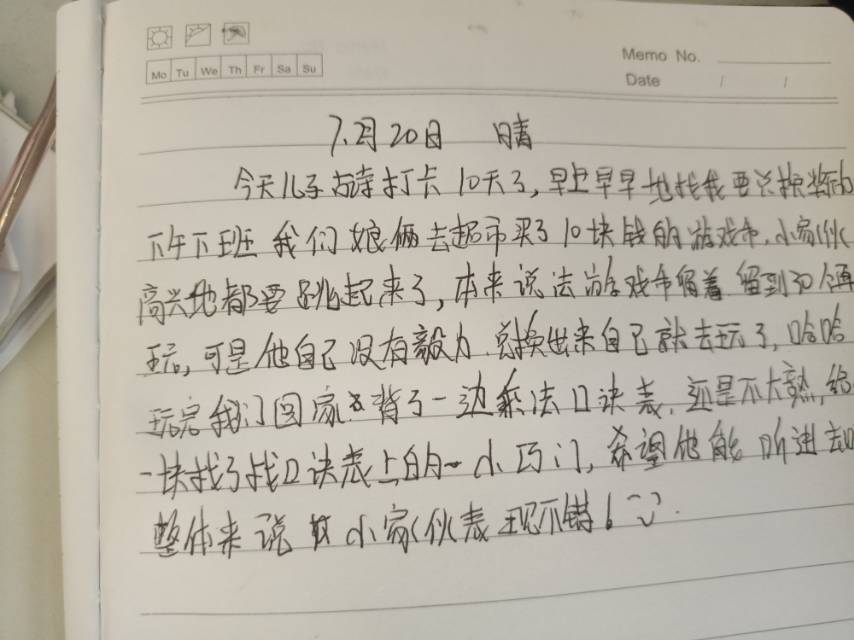 Memo No.
Mo Tu We Th Fr Sa Su
Date / /
7.月20日 晴
今天儿子古诗打卡10天了,早上早早地找我要兑换奖励
下午下班我们娘俩去超市买了10块钱的游戏币,小家伙
高兴地都要跳起来了,本来说法游戏币留着留到30个再
玩,可是他自己没有毅力.兑换出来自己就去玩了,哈哈
玩完我们回家又背了一边乘法口诀表,还是不太熟,给
一块找了找口诀表上的一小巧门,希望他能听进去
整体来说 小家伙表现不错!